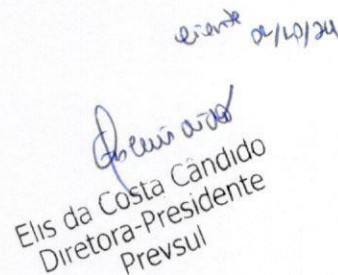 ciente 04/10/24
Elis da Costa Cândido
Diretora-Presidente
Prevsul